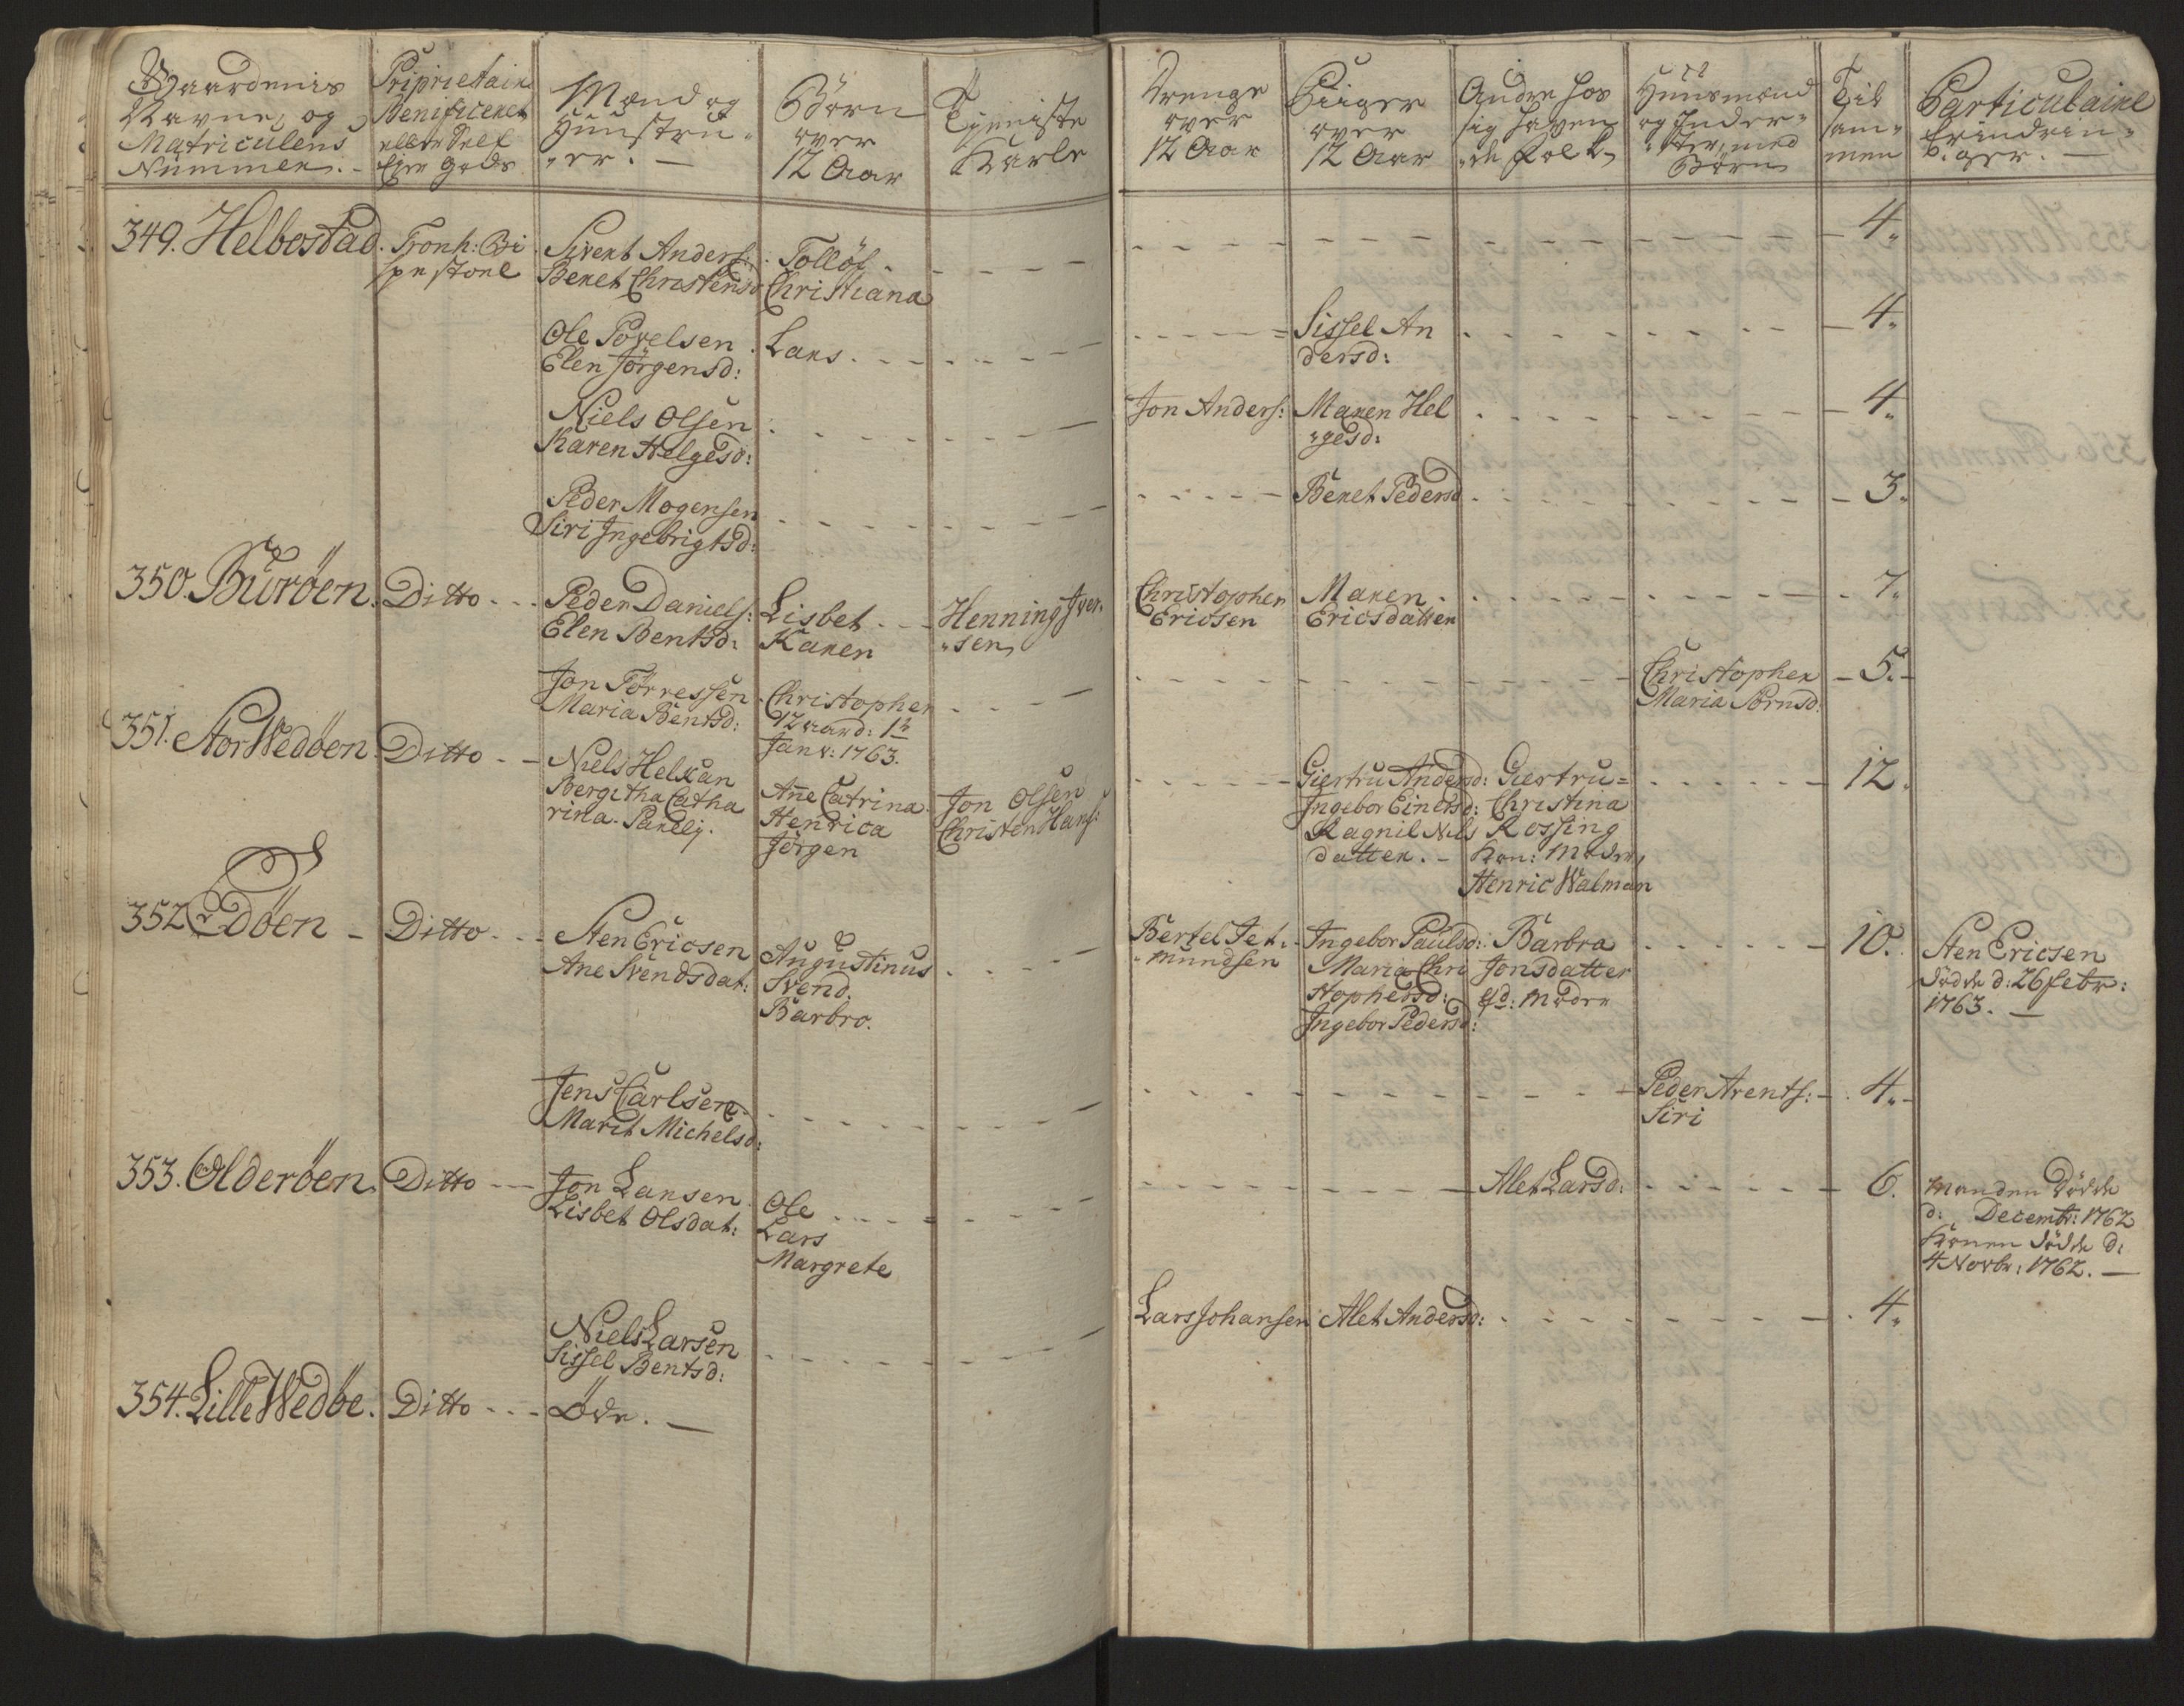 Gaardenis
Navne, og
Matriculens
Nummer.
Proprietair
Benificeret
eller Self
Eier Gods
Mænd og
Hustru-
er.
Börn
over
12 Aar
Tieniste
Karle
Drenge
over
12 Aar
Piiger
over
12 Aar
Andre Hos
sig haven-
de Folk
Huusmænd
og Inder-
ster, med
Börn
Til
sam-
men
Particulaire
Erindrin-
ger.
349. Helbostad. Tronh: Bi
spestoel
Sivert Anders:
Beret Christensd
Tollöf
Christiana
4.
Ole Povelsen
Elen Jörgensd:
Lars
Sissel An
dersd:
4.
Niels Olsen
Karen Helgesd:
Jon Anders:
Maren Hel
gesd:
4.
Peder Mogensen
Siri Ingebrigtsd:
Beret Pedersd
3.
350. Buröen. Ditto
Peder Daniels:
Elen Bentsd:
Lisbet
Karen
Henning Iver-
sen
Christopher
Ericsen
Maren
Ericsdatter
7.
Jon Törressen
Maria Bentsd:
Christopher
12 aar d: 1te
Janv: 1763.
Christopher
Maria Pornsd:
5.
351. Stor Wedöen. Ditto
Niels Helkan
Bergitha Catha
rina Parelj.
Ane Catrina
Henrica
Jörgen
Jon Olsen
Christen Hans:
Giertru Andersd:
Ingebor Einersd:
Ragnil Nils
datter.
Giertru
Christina
Rossing
Kon: Moder
Henric Walman
12.
352. Edöen Ditto
Sten Ericsen
Ane Svendsdat:
Augustinus
Svend.
Barbro.
Bertel Jet-
mundsen
Ingebor Paulsd:
Maria Chri
stophersd:
Ingebor Pedersd:
Barbra
Jonsdatter
qd: Modre
10.
Sten Ericsen
döde d: 26 Febr:
1763.
Jens Carlsen
Marit Michelsd:
Peder Arents:
Siri
4.
353. Olderöen. Ditto
Jon Larsen
Lisbet Olsdat:
Ole
Lars
Margrete
Alet Larsd:
6.
Manden döde
d: Decembr: 1762
Konen döde d:
4 Novbr: 1762.
Niels Larsen
Sissel Bentsd:
Lars Johansen
Alet Andersd:
4.
354. Lille Wedöe. Ditto
Öde.